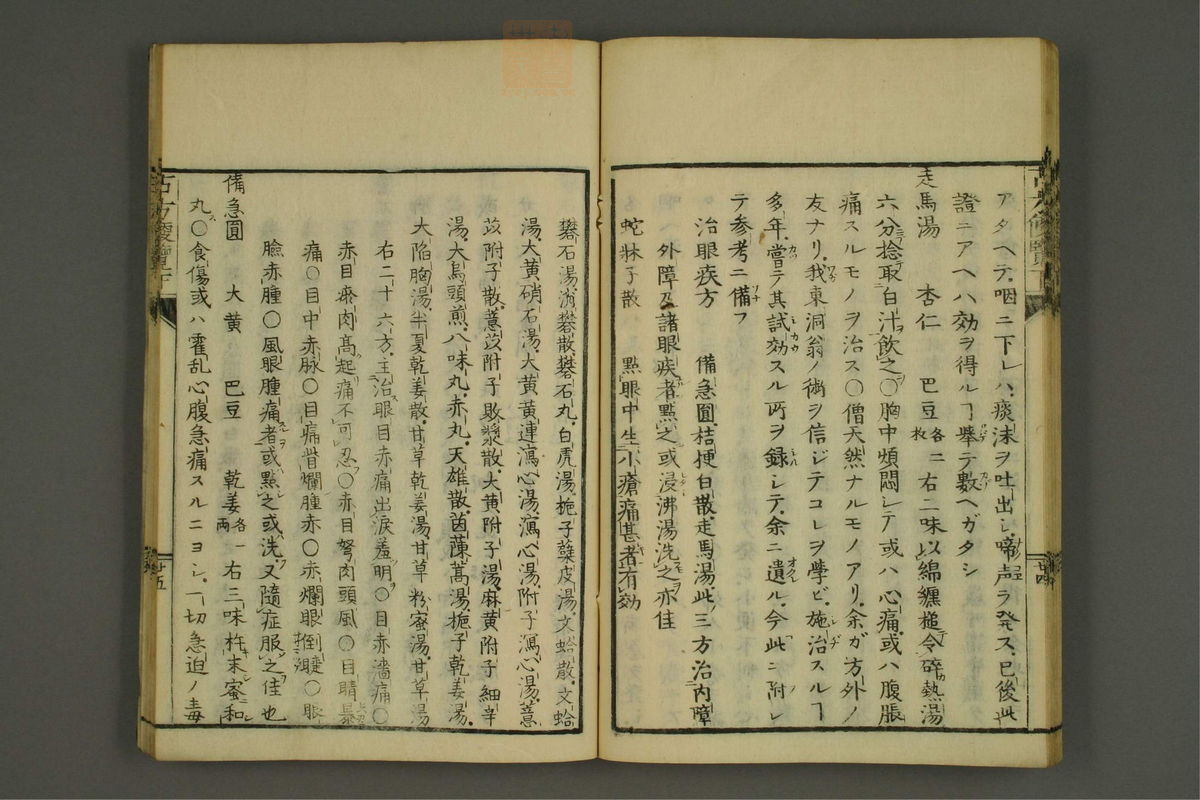 アタヘテ咽ニ下レハ痰沫ヲ吐出シ啼声ヲ発ス已後此
證ニアヘハ効ヲ得ルヿ擧テ數ヘガタシ
走馬湯 杏仁 巴豆各二枚 右二味以綿纏槌令碎熱湯
六分捻取白汁飲之〇胸中煩悶シテ或ハ心痛或ハ腹脹
痛スルモノヲ治ス〇僧天然ナルモノアリ余ガ方外ノ
友ナリ我東洞翁ノ術ヲ信ジテコレヲ學ビ施治スルヿ
多年嘗テ其試効スル所ヲ録シテ余ニ遺ル今此ニ附シ
テ参考ニ備フ
治眼疾方 備急圓桔梗白散走馬湯此三方治内障
外障及諸眼疾者點之或浸沸湯洗之亦佳
蛇牀子散 點眼中生小瘡痛甚者有効
廿四
礬石湯消礬散礬石丸白虎湯梔子蘗皮湯文蛤散文蛤
湯大黄硝石湯大黄黄連瀉心湯瀉心湯附子瀉心湯薏
苡附子散薏苡附子敗漿散大黄附子湯麻黄附子細辛
湯大烏頭煎八味丸赤丸天雄散茵蔯蒿湯梔子乾姜湯
大陷胸湯半夏乾姜散甘草乾姜湯甘草粉蜜湯甘草湯
右二十六方主治眼目赤痛出涙羞明〇目赤濇痛〇
赤目瘀肉高起痛不可忍〇赤目努肉頭風〇目睛暴
痛〇目中赤脉〇目痛眥爛腫赤〇赤爛眼倒睫〇眼
瞼赤腫〇風眼腫痛者或點之或洗又隨症服之佳也
備急圓 大黄 巴豆 乾姜各一兩 右三味杵末蜜和
丸〇食傷或ハ霍乱心腹急痛スルニヨシ一切急迫ノ毒
廿五